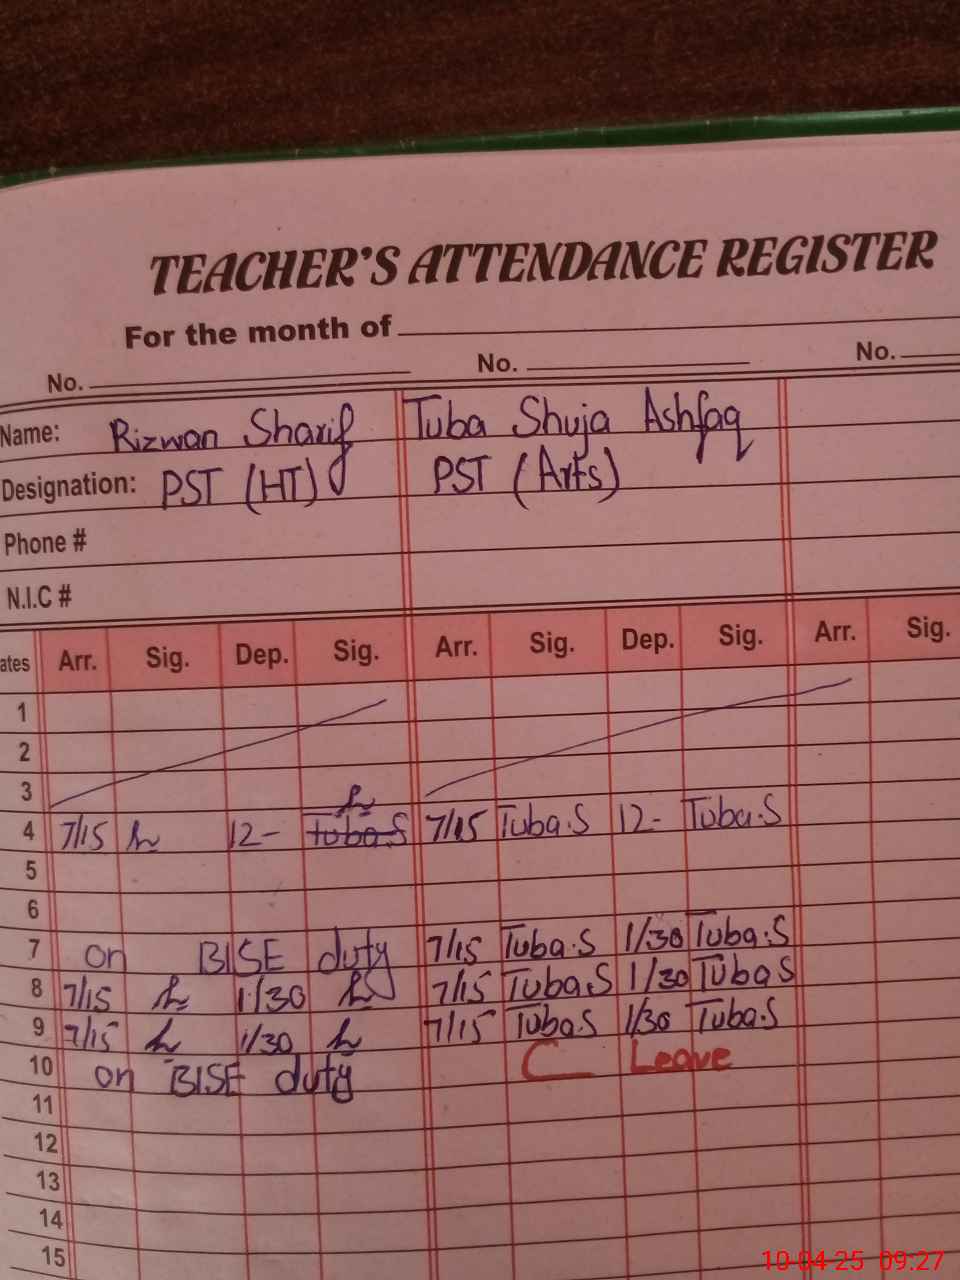 TEACHER'S ATTENDANCE REGISTER
For the month of
No. No. No.
Name: Rizwan Sharif Tuba Shuja Ashfaq
Designation: PST (HT) PST (Arts)
Phone #
N.I.C #
ates Arr. Sig. Dep. Sig. Arr. Sig. Dep. Sig. Arr. Sig.
1
2
3
4 7/15 12- tuba.S 7/15 Tuba.S 12- Tuba.S
5
6
7 on BISE duty 7/15 Tuba.S 1/30 Tuba.S
8 7/15 1/30 7/15 Tuba.S 1/30 Tuba S
9 7/15 1/30 7/15 Tuba.S 1/30 Tuba.S
10 on BISE duty C Leave
11
12
13
14
15
10-04-25 09:27